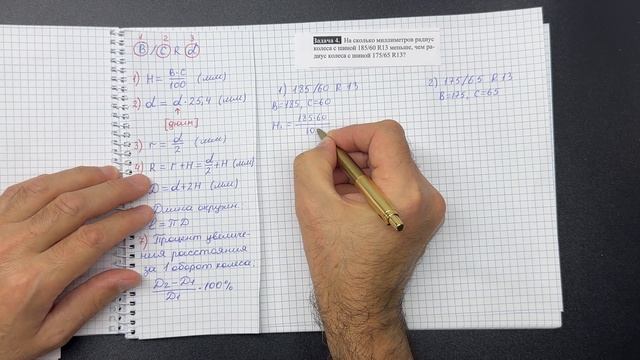 1 2 3
B/C R d
1) H = B·C/100 (мм)
2) d = d·25,4 (мм)
[дюйм]
3) r = d/2 (мм)
4) R = r+H = d/2+H (мм)
D = d+2H (мм)
Длина окружн.
= πD
7) Процент увеличе-
ния расстояния
за 1 оборот колеса:
D₂-D₁/D₁ ·100%
Задача 4. На сколько миллиметров радиус
колеса с шиной 185/60 R13 меньше, чем ра-
диус колеса с шиной 175/65 R13?
1) 185/60 R 13
B=185, C=60
H₁ = 185·60/10
2) 175/65 R 13
B=175, C=65